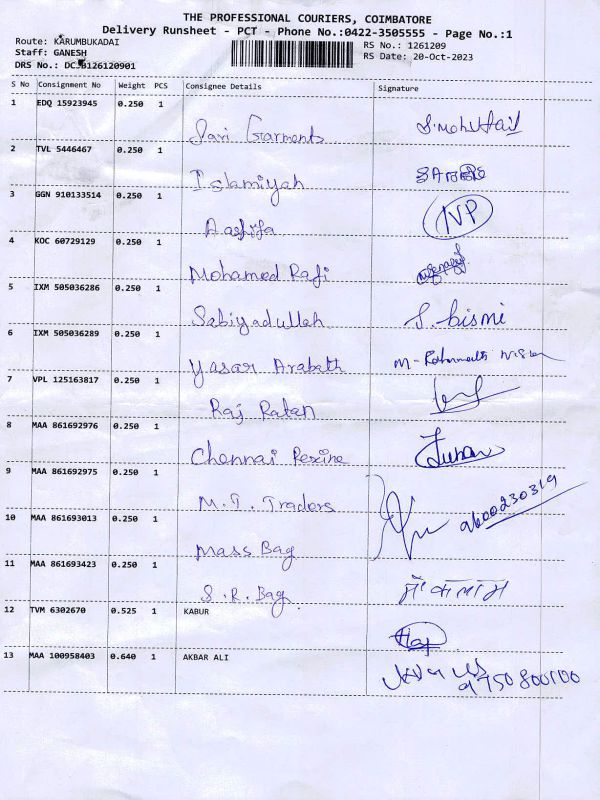 THE PROFESSIONAL COURIERS, COIMBATORE
Delivery Runsheet - PCT - Phone No.:0422-3505555 - Page No.:1
Route: KARUMBUKADAI
RS No.: 1261209
Staff: GANESH
RS Date: 20-Oct-2023
DRS No.: DCJB126120901
S No Consignment No Weight PCS Consignee Details Signature
1 EDQ 15923945 0.250 1
Sari Garments
2 TVL 5446467 0.250 1
Islamiyah
3 GGN 910133514 0.250 1
Aashifa NVP
4 KOC 60729129 0.250 1
Mohamed Rafi
5 IXM 505036286 0.250 1
Sabiyadullah S. bismi
6 IXM 505036289 0.250 1
Yasar Arabath
7 VPL 125163817 0.250 1
Raj Ratan
8 MAA 861692976 0.250 1
Chennai Rexine
9 MAA 861692975 0.250 1
M.T. Traders 9600230319
10 MAA 861693013 0.250 1
Mass Bag
11 MAA 861693423 0.250 1
S.R. Bag
12 TVM 6302670 0.525 1 KABUR
13 MAA 100958403 0.640 1 AKBAR ALI
9750800100